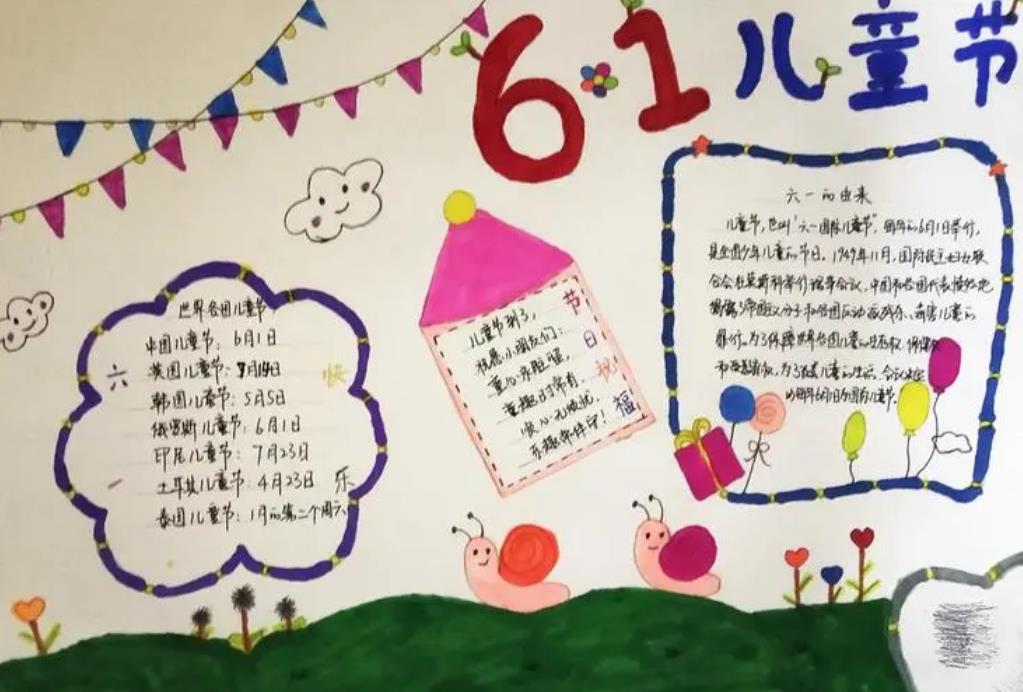 61儿童节
世界各国儿童节
中国儿童节：6月1日
英国儿童节：7月14日
韩国儿童节：5月5日
俄罗斯儿童节：6月1日
印尼儿童节：7月23日
土耳其儿童节：4月23日
泰国儿童节：1月的第二个周六
六一快乐
儿童节到了，
祝愿小朋友们：
童心永驻留，
童趣时常有，
安心无忧扰，
乐趣常伴守！
节日祝福
六一的由来
儿童节，也叫“六一国际儿童节”，每年的6月1日举行，
是全国少年儿童的节日。1949年11月，国际民主妇女联
合会在莫斯科举行理事会议，中国和各国代表愤怒地
揭露了帝国主义分子和各国反动派残杀、毒害儿童的
罪行。为了保障世界各国儿童的生存权、保健权
和受教育权，为了改善儿童的生活，会议决定
以每年6月1日为国际儿童节。